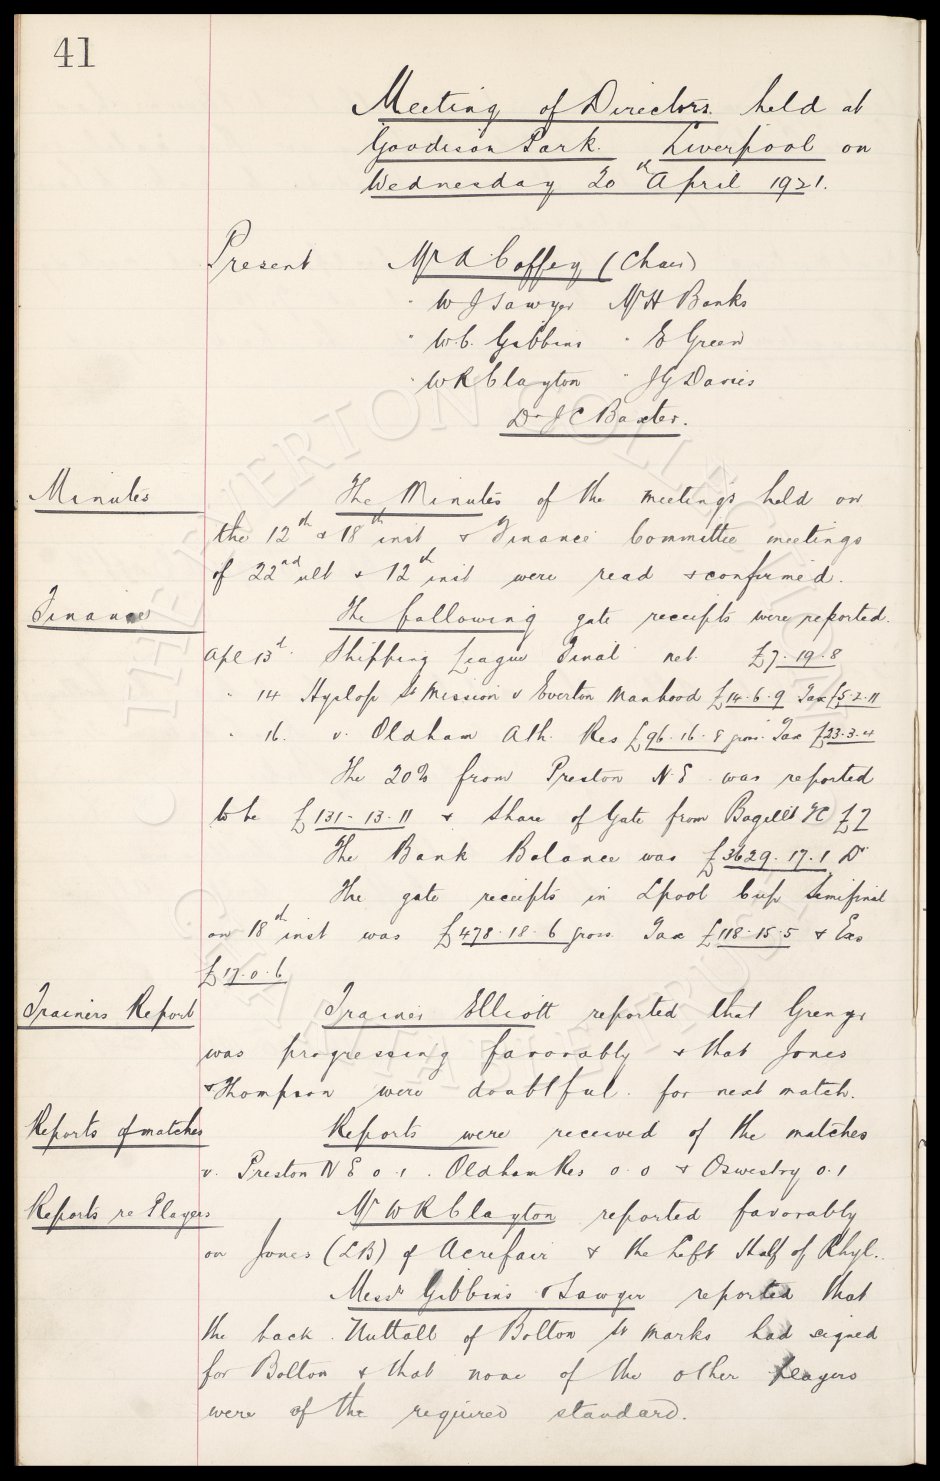 41
Meeting of Directors held at
Goodison Park. Liverpool on
Wednesday 20th April 1921.
Present Mr A Coffey (Chair)
" W J Sawyer Mr H Banks
" W C. Gibbins " E Green
" W R Clayton " J G Davies
Dr J C Baxter.
Minutes The Minutes of the meetings held on
the 12th & 18th inst & Finance Committee meetings
of 22nd ult & 12th inst were read & confirmed.
Finance The following gate receipts were reported.
Apl 13th Shipping League Final net. £7.19.8
" 14 Hyslop St Mission v Everton Manhood £14.6.9 Tax £5.2.11
" 16. v. Oldham Ath. Res £96.16.8 gross. Tax £23.3.4
The 20% from Preston N.E. was reported
to be £131-13-11 & share of Gate from Bagillt FC £2
The Bank Balance was £3629.17.1 Dr
The gate receipts in Lpool Cup Semifinal
on 18th inst was £478.18.6 gross Tax £118.15.5 & Exs
£17.0.6
Trainers Report Trainer Elliott reported that Grenyer
was progressing favorably & that Jones
& Thompson were doubtful for next match.
Reports of matches Reports were received of the matches
v. Preston N E 0.1. Oldham Res 0.0 & Oswestry 0.1
Reports re Players Mr W R Clayton reported favorably
on Jones (LB) of Acrefair & the Left Half of Rhyl.
Messrs Gibbins & Sawyer reported that
the back. Nuttall of Bolton St Marks had signed
for Bolton & that none of the other players
were of the required standard.
© THE EVERTON COLLECTION CHARITABLE TRUST